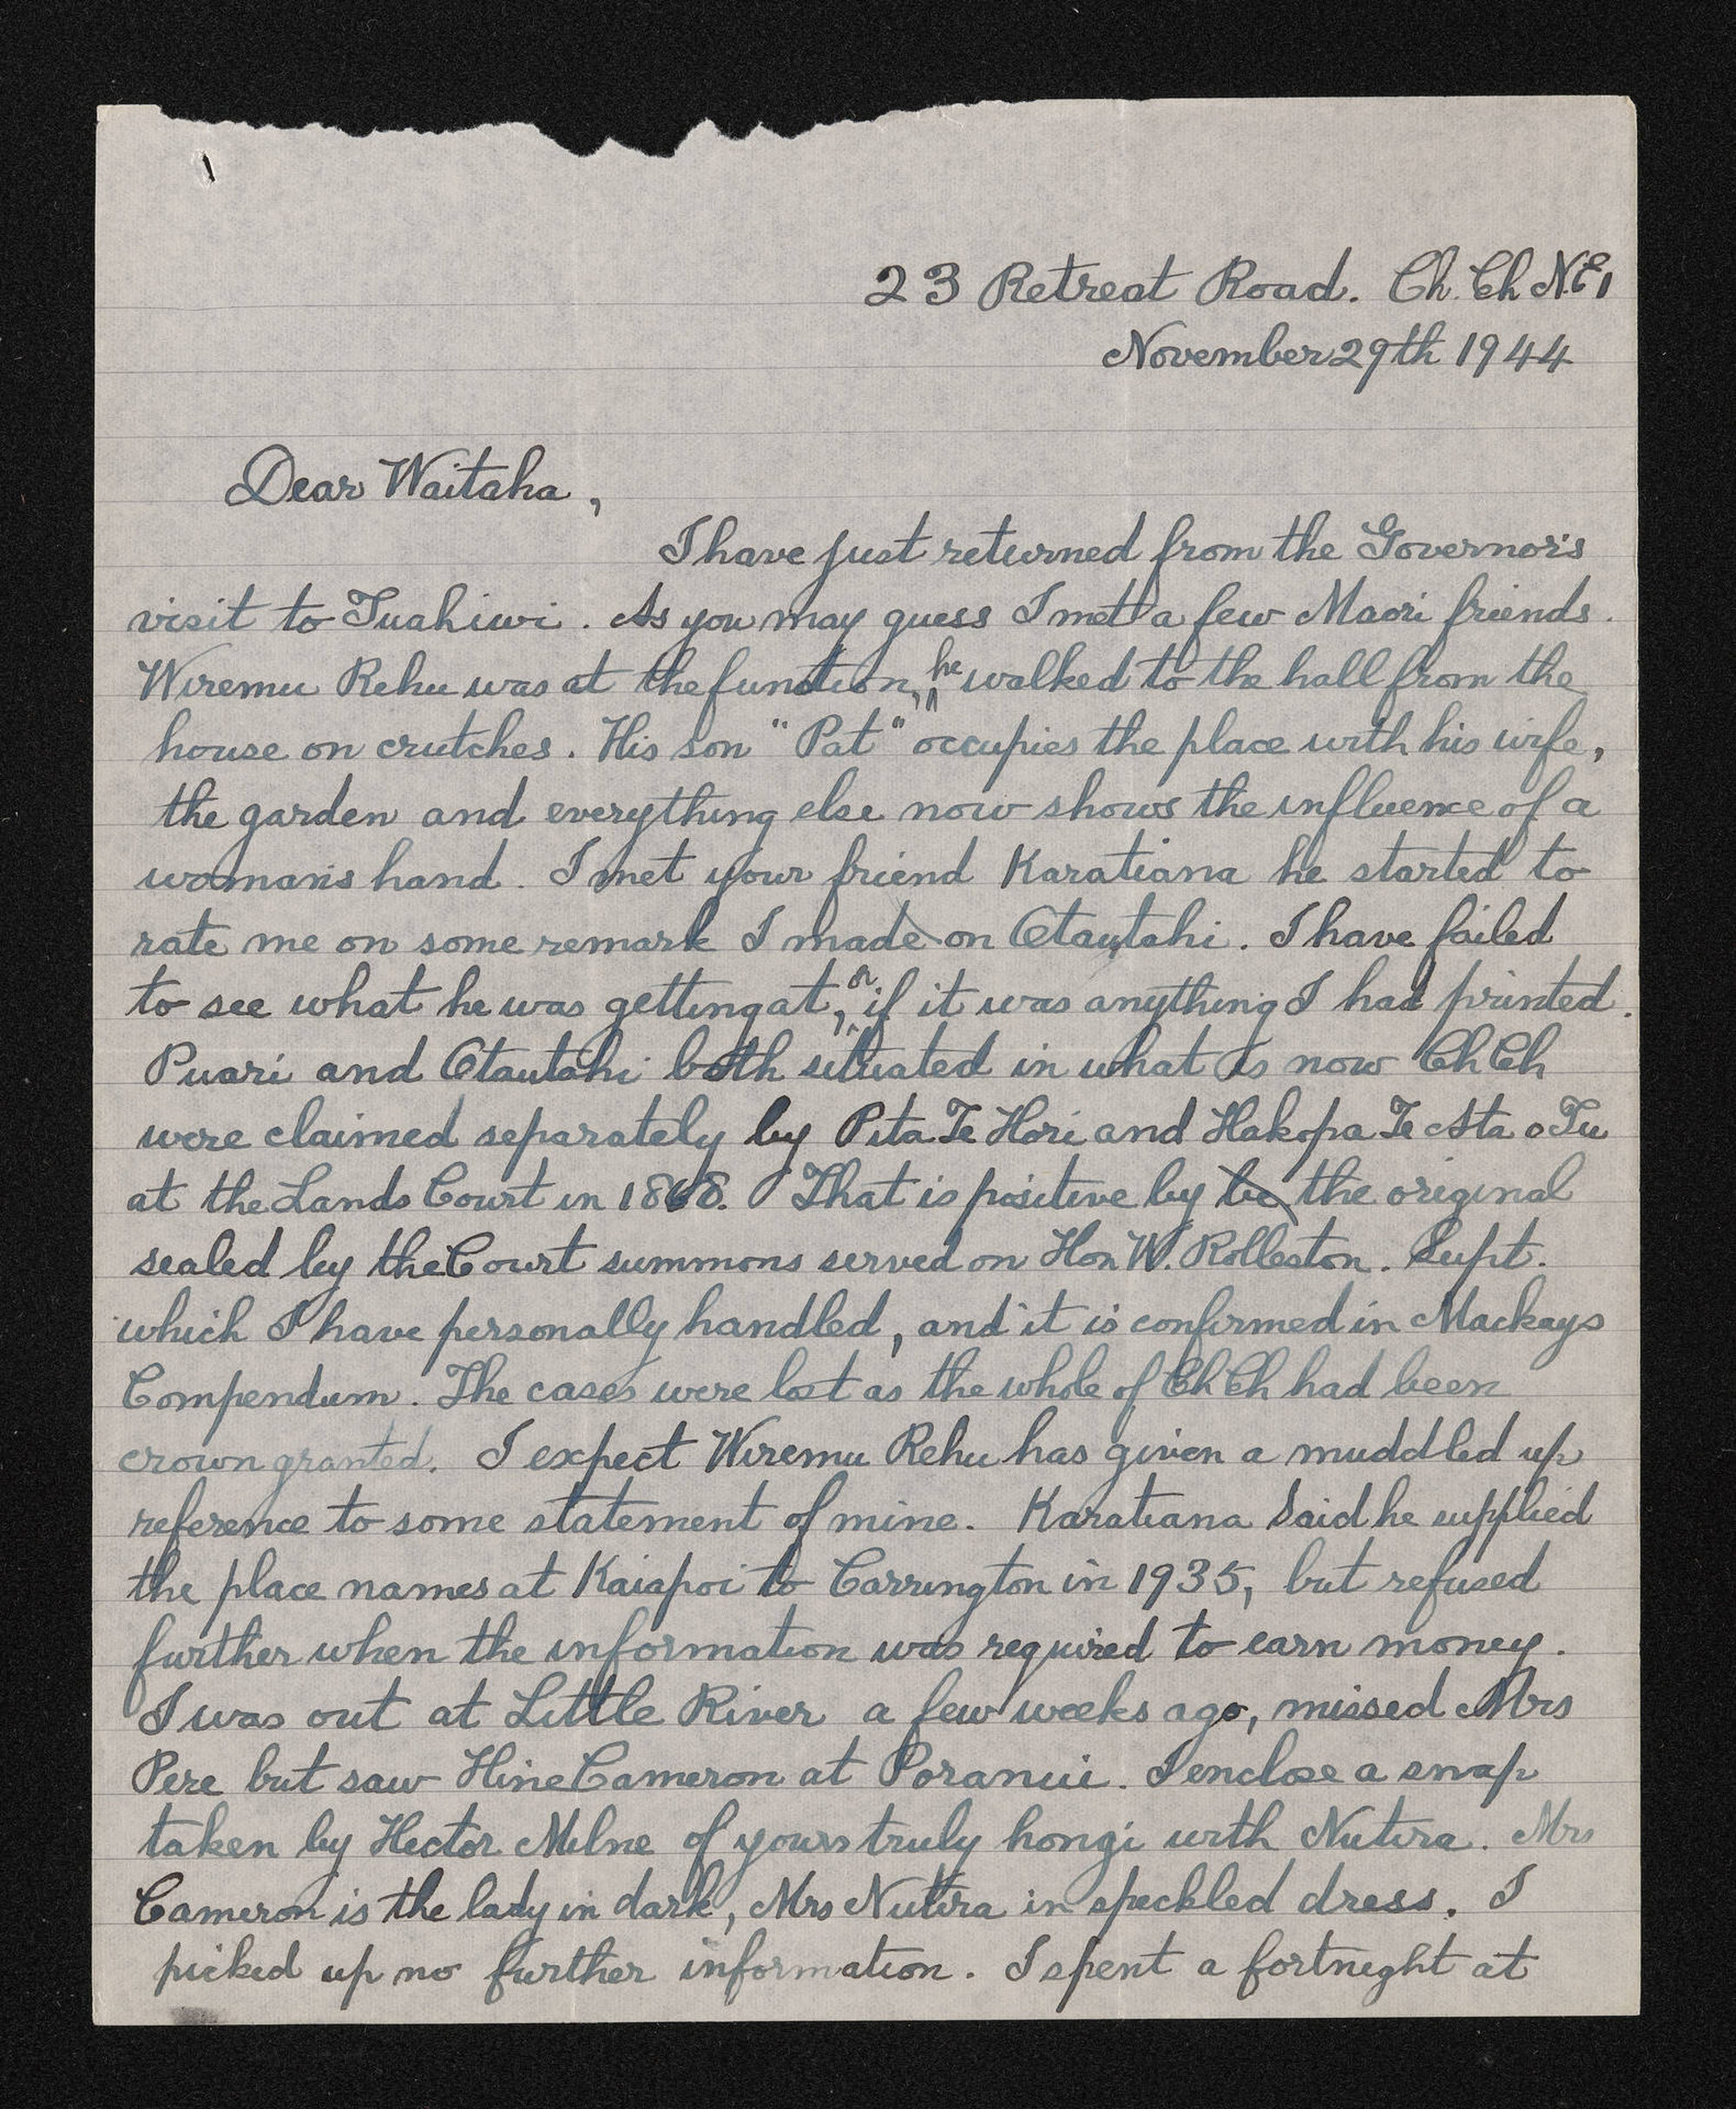 23 Retreat Road. Ch. Ch N.E1
November 29th 1944
Dear Waitaha,
I have just returned from the Governor's
visit to Tuahiwi. As you may guess I mett a few Maori friends.
Wiremu Rehu was at the function, he walked to the hall from the
house on crutches. His son "Pat" occupies the place with his wife,
the garden and everything else now shows the influence of a
woman's hand. I met your friend Karatiana he started to
rate me on some remark I made on Otautahi. I have failed
to see what he was getting at, or if it was anything I had printed.
Puari and Otautahi both situated in what is now Ch Ch
were claimed separately by Pita Te Hori and Hakopa Te Ata o Tu
at the Lands Court in 1868. That is positive by be the original
sealed by the Court summons served on Hon W. Rolleston. Supt.
which I have personally handled, and it is confirmed in Mackays
Compendum. The cases were lost as the whole of Ch Ch had been
crown granted. I expect Wiremu Rehu has given a muddled up
reference to some statement of mine. Karatiana said he supplied
the place names at Kaiapoi to Carrington in 1935, but refused
further when the information was required to earn money.
I was out at Little River a few weeks ago, missed Mrs
Pere but saw Hine Cameron at Poranui. I enclose a snap
taken by Hector Milne of yours truly hongi with Nutira. Mrs
Cameron is the lady in dark, Mrs Nutira in speckled dress. I
picked up no further information. I spent a fortnight at